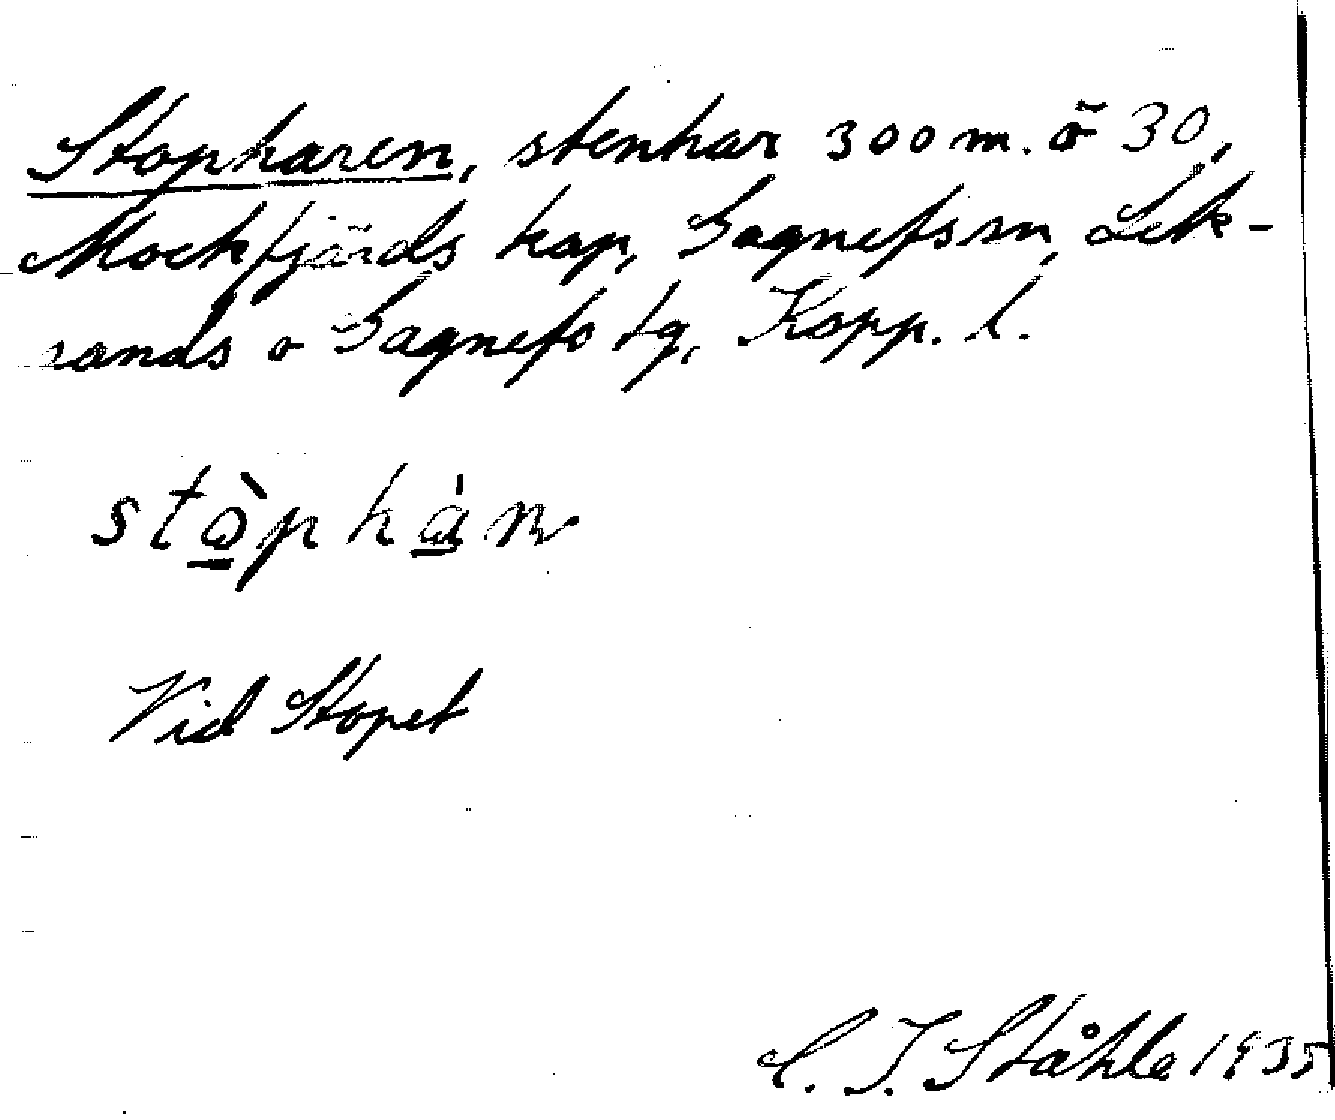 Stopharen, stenhar 300 m. ö 30,
Mockfjärds kap, Gagnefs sn, Lek-
sands o Gagnefs tg, Kopp. l.
stòphàn
Vid Stopet
C. I. Ståhle 1935